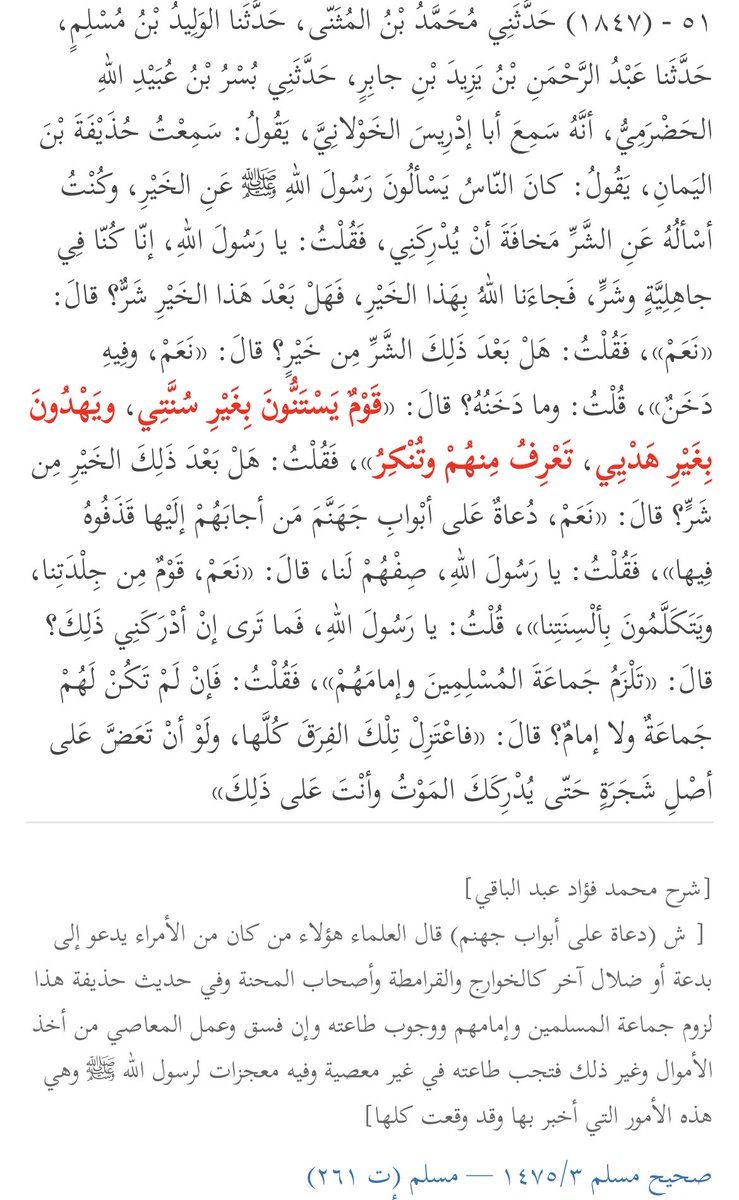 ٥١ - (١٨٤٧) حَدَّثَنِي مُحَمَّدُ بْنُ المُثَنّى، حَدَّثَنا الوَلِيدُ بْنُ مُسْلِمٍ،
حَدَّثَنا عَبْدُ الرَّحْمَنِ بْنُ يَزِيدَ بْنِ جابِرٍ، حَدَّثَنِي بُسْرُ بْنُ عُبَيْدِ اللهِ
الحَضْرَمِيُّ، أنَّهُ سَمِعَ أبا إدْرِيسَ الخَوْلانِيَّ، يَقُولُ: سَمِعْتُ حُذَيْفَةَ بْنَ
اليَمانِ، يَقُولُ: كانَ النّاسُ يَسْألُونَ رَسُولَ اللهِ ﷺ عَنِ الخَيْرِ، وكُنْتُ
أسْألُهُ عَنِ الشَّرِّ مَخافَةَ أنْ يُدْرِكَنِي، فَقُلْتُ: يا رَسُولَ اللهِ، إنّا كُنّا فِي
جاهِلِيَّةٍ وشَرٍّ، فَجاءَنا اللهُ بِهَذا الخَيْرِ، فَهَلْ بَعْدَ هَذا الخَيْرِ شَرٌّ؟ قالَ:
«نَعَمْ»، فَقُلْتُ: هَلْ بَعْدَ ذَلِكَ الشَّرِّ مِن خَيْرٍ؟ قالَ: «نَعَمْ، وفِيهِ
دَخَنٌ»، قُلْتُ: وما دَخَنُهُ؟ قالَ: «قَوْمٌ يَسْتَنُّونَ بِغَيْرِ سُنَّتِي، ويَهْدُونَ
بِغَيْرِ هَدْيِي، تَعْرِفُ مِنهُمْ وتُنْكِرُ»، فَقُلْتُ: هَلْ بَعْدَ ذَلِكَ الخَيْرِ مِن
شَرٍّ؟ قالَ: «نَعَمْ، دُعاةٌ عَلى أبْوابِ جَهَنَّمَ مَن أجابَهُمْ إلَيْها قَذَفُوهُ
فِيها»، فَقُلْتُ: يا رَسُولَ اللهِ، صِفْهُمْ لَنا، قالَ: «نَعَمْ، قَوْمٌ مِن جِلْدَتِنا،
ويَتَكَلَّمُونَ بِألْسِنَتِنا»، قُلْتُ: يا رَسُولَ اللهِ، فَما تَرى إنْ أدْرَكَنِي ذَلِكَ؟
قالَ: «تَلْزَمُ جَماعَةَ المُسْلِمِينَ وإمامَهُمْ»، فَقُلْتُ: فَإنْ لَمْ تَكُنْ لَهُمْ
جَماعَةٌ ولا إمامٌ؟ قالَ: «فاعْتَزِلْ تِلْكَ الفِرَقَ كُلَّها، ولَوْ أنْ تَعَضَّ عَلى
أصْلِ شَجَرَةٍ حَتّى يُدْرِكَكَ المَوْتُ وأنْتَ عَلى ذَلِكَ»
[شرح محمد فؤاد عبد الباقي]
[ ش (دعاة على أبواب جهنم) قال العلماء هؤلاء من كان من الأمراء يدعو إلى
بدعة أو ضلال آخر كالخوارج والقرامطة وأصحاب المحنة وفي حديث حذيفة هذا
لزوم جماعة المسلمين وإمامهم ووجوب طاعته وإن فسق وعمل المعاصي من أخذ
الأموال وغير ذلك فتجب طاعته في غير معصية وفيه معجزات لرسول الله ﷺ وهي
هذه الأمور التي أخبر بها وقد وقعت كلها]
صحيح مسلم ١٤٧٥/٣ — مسلم (ت ٢٦١)